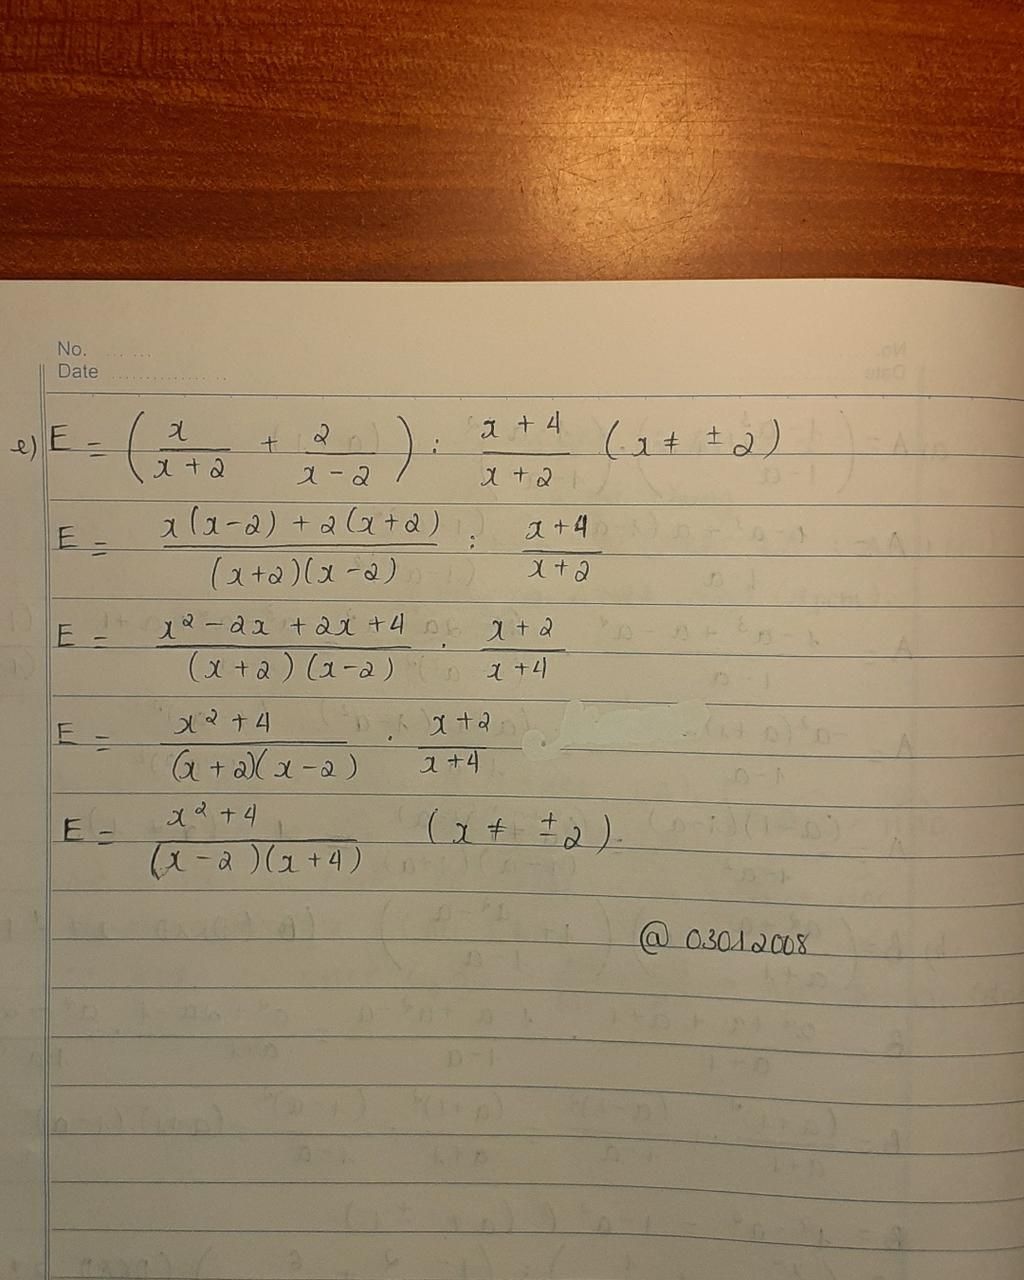 No. ... ...
Date ..............
e) E = (x/(x+2) + 2/(x-2)) : (x+4)/(x+2) (x ≠ ±2)
E = (x(x-2) + 2(x+2))/((x+2)(x-2)) : (x+4)/(x+2)
E = (x² - 2x + 2x + 4)/((x+2)(x-2)) . (x+2)/(x+4)
E = (x² + 4)/((x+2)(x-2)) . (x+2)/(x+4)
E = (x² + 4)/((x-2)(x+4)) (x ≠ ±2).
@ 03012008